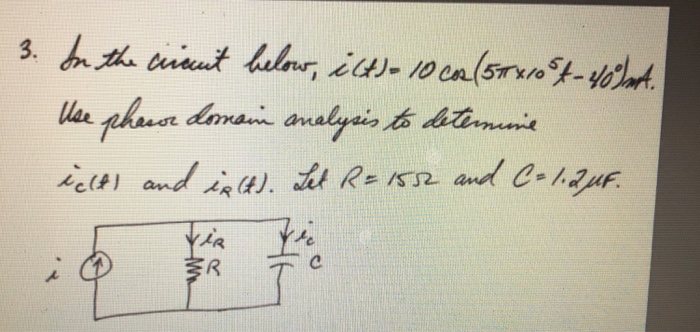 3. In the circuit below, i(t)= 10 cos(5π×10⁵t-40°)mA.
Use phasor domain analysis to determine
ic(t) and iR(t). Let R=15Ω and C=1.2μF.
i
iR
R
ic
C